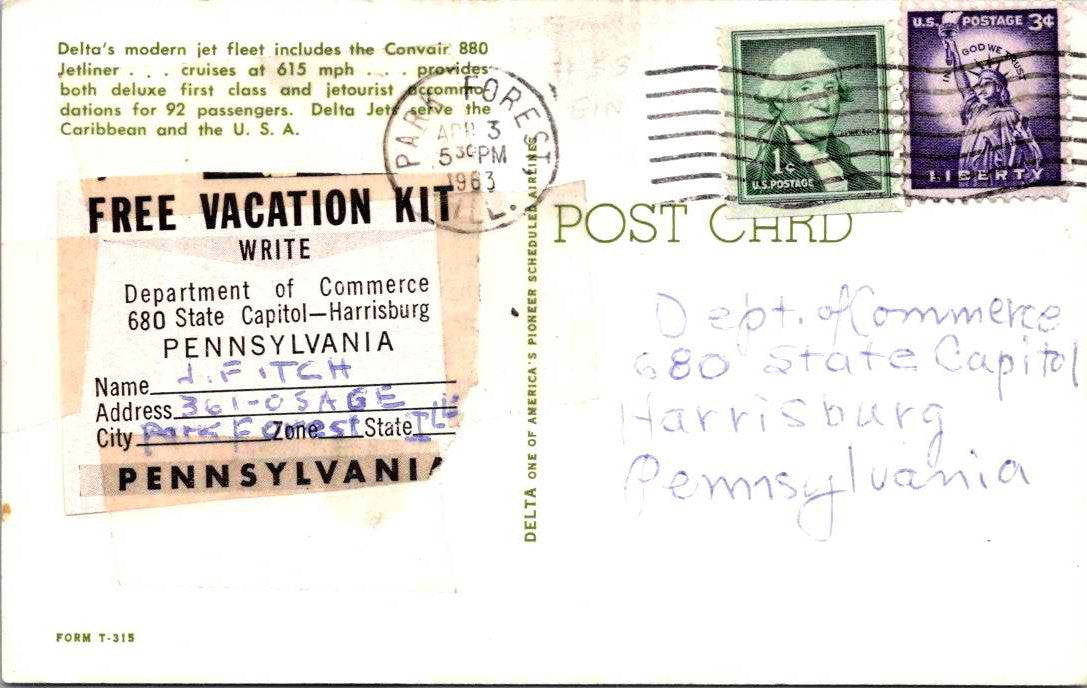 Delta's modern jet fleet includes the Convair 880
Jetliner . . . cruises at 615 mph . . . provides
both deluxe first class and jetourist accommo-
dations for 92 passengers. Delta Jets serve the
Caribbean and the U. S. A.
PARK FOREST
APR 3
5 30 PM
1963
ILL.
U.S. POSTAGE 3¢
IN GOD WE TRUST
LIBERTY
1¢
U.S. POSTAGE
FREE VACATION KIT
WRITE
Department of Commerce
680 State Capitol—Harrisburg
PENNSYLVANIA
Name J. FITCH
Address 361-OSAGE
City Park Forest Zone State ILL
PENNSYLVANIA
DELTA ONE OF AMERICA'S PIONEER SCHEDULED AIRLINES
POST CARD
Dept. of Commerce
680 State Capitol
Harrisburg
Pennsylvania
FORM T-315